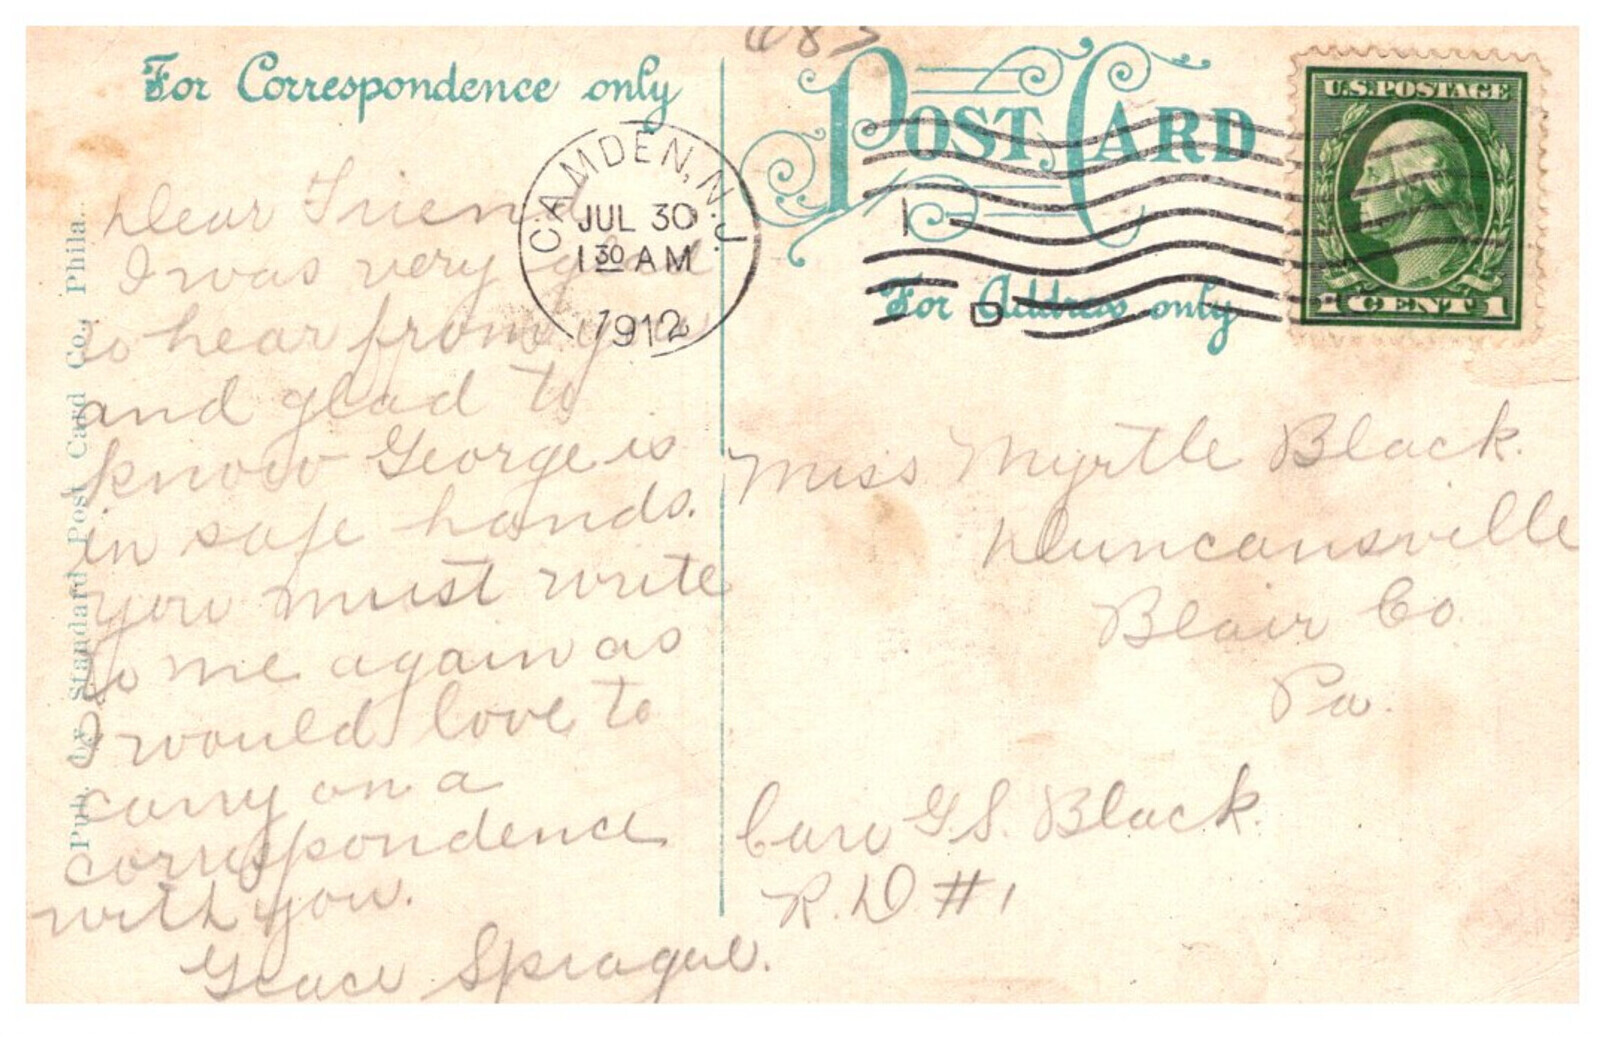 For Correspondence only
POST CARD
For Address only
U.S. POSTAGE
1 CENT 1
CAMDEN, N.J.
JUL 30
1 30 AM
1912
D
Pub. by Standard Post Card Co., Phila.
Dear Friend
I was very glad
to hear from you
and glad to
know George is
in safe hands.
you must write
to me again as
I would love to
carry on a
correspondence
with you.
Grace Sprague.
Miss Myrtle Black.
Duncansville
Blair Co.
Pa.
Care G.S. Black.
R.D. #1